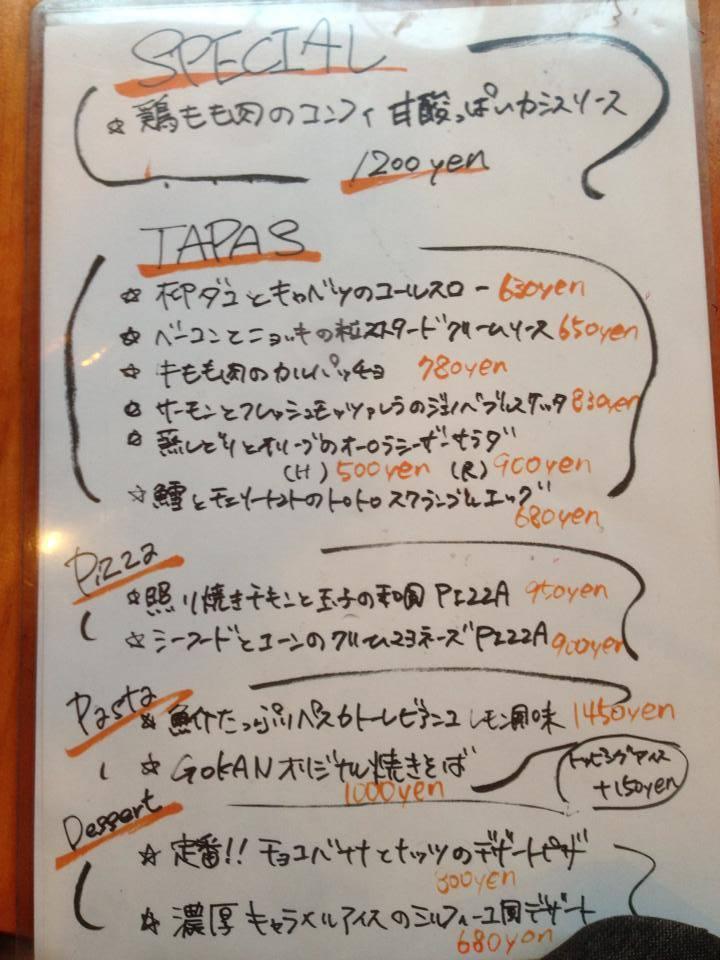 SPECIAL
☆ 鶏もも肉のコンフィ 甘酸っぱいカシスソース
1200yen
TAPAS
☆ 水ダコとキャベツのコールスロー 630yen
☆ ベーコンとニョッキの粒マスタードクリームソース 650yen
☆ 牛もも肉のカルパッチョ 780yen
☆ サーモンとフレッシュモッツァレラのジェノベブルスケッタ 830yen
☆ 蒸しどりとオリーブのオーロラシーザーサラダ
(H) 500yen (R) 900yen
☆ 鱈とチェリートマトのトロトロスクランブルエッグ
680yen
Pizza
☆ 照り焼きチキンと玉子の和風 PIZZA 950yen
☆ シーフードとコーンのクリームマヨネーズPIZZA 900yen
Pasta
☆ 魚介たっぷりペスカトーレビアンコ レモン風味 1450yen
☆ GOKANオリジナル焼きそば
1000yen
トッピングアイス
+150yen
Dessert
☆ 定番!! チョコバナナとナッツのデザートピザ
800yen
☆ 濃厚キャラメルアイスのミルフィーユ風デザート
680yen